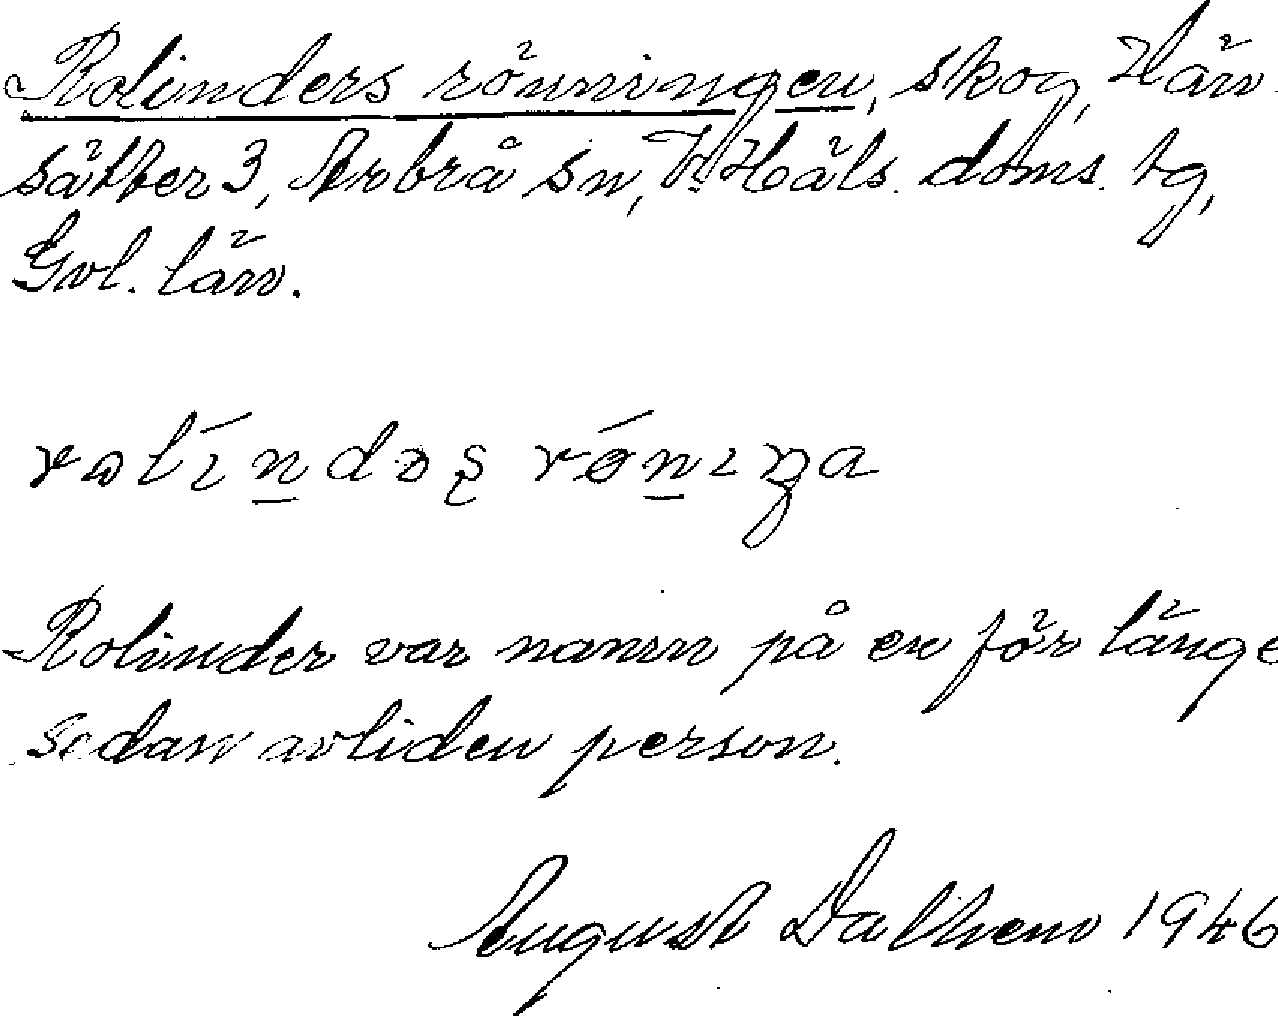 Rolinders rönningen, skog, Hän-
sätter 3, Arbrå sn, V. Häls. doms. tg,
Gvl. län.
Rolinder var namn på en för länge
sedan avliden person.
August Dalhem 1946